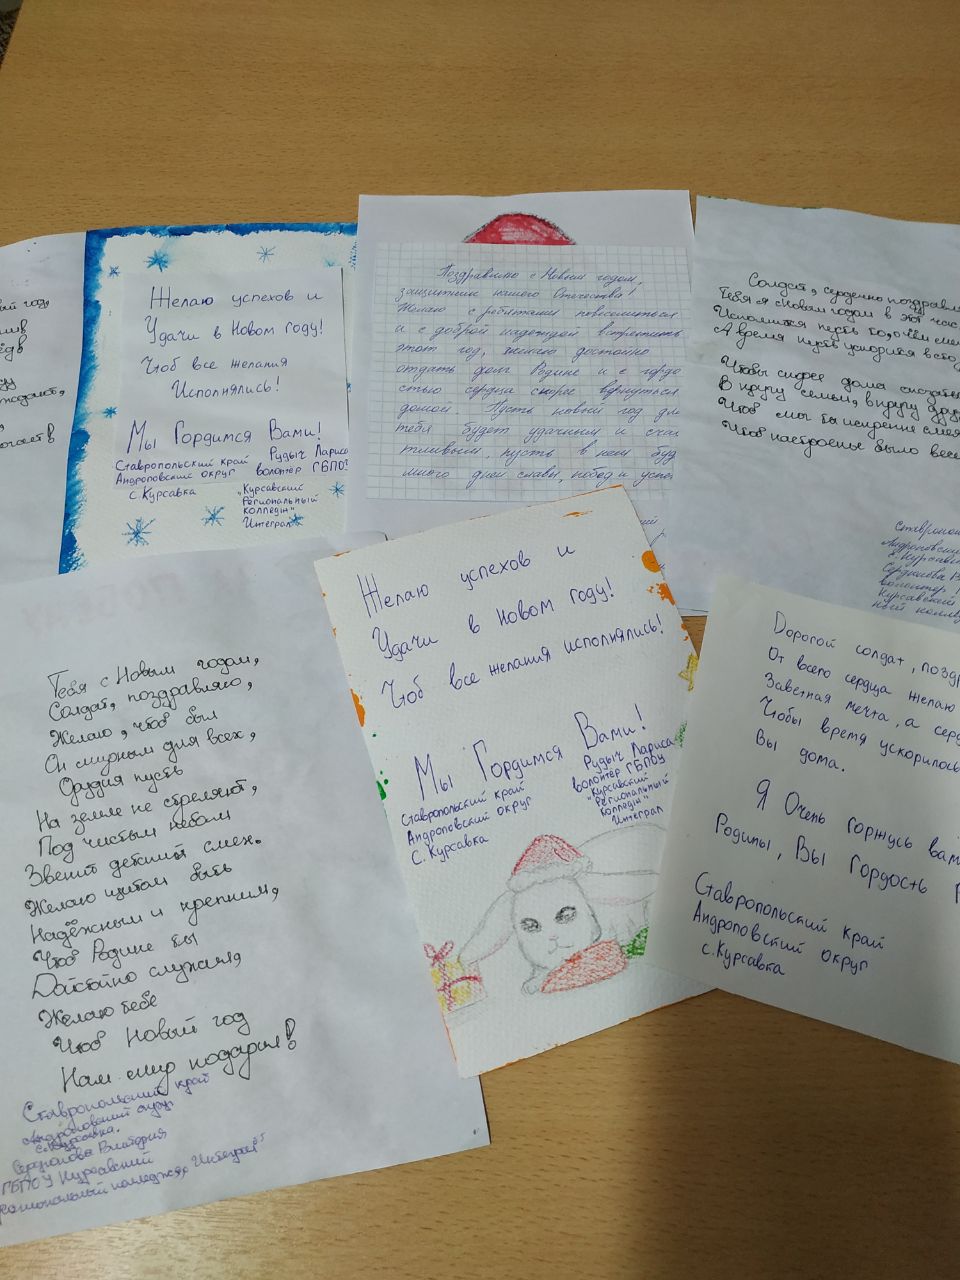 год,
Желаю успехов и
Удачи в Новом году!
Чтоб все желания
Исполнялись!
Мы Гордимся Вами!
Ставропольский край
Андроповский округ
с. Курсавка
Рудыч Лариса
волонтёр ГБПОУ
"Курсавский
региональный
колледж"
Интеграл
Поздравляю с Новым годом,
защитник нашего Отечества!
Желаю с ребятами повеселиться
и с доброй надеждой встретить
этот год, желаю достойно
отдать долг Родине и с гордо
стью сердца скорее вернуться
домой. Пусть новый год для
тебя будет удачным и счас
тливым, пусть в нём буд
много дней славы, побед и успе
Солдат, сердечно поздравля
Тебя я с Новым годом в этот час
Исполнится пусть то, о чём меч
А время пусть ускорится
Чтобы скорее дома оказаться
В кругу семьи, в кругу друзе
Чтоб мог бы искренне смея
Чтоб настроенье было весе
Ставропол
Андроповский
с. Курсавка
Сердюкова В
волонтёр
Курсавский
ный колле
Тебя с Новым годом,
Солдат, поздравляю,
Желаю, чтоб был
Он мирным для всех,
Орудия пусть
На земле не стреляют,
Под чистым небом
Звенит детский смех.
Желаю щитом быть
Надёжным и крепким,
Чтоб Родине бы
Достойно служил,
Желаю тебе
Чтоб Новый год
Нам мир подарил!
Ставропольский край
Андроповский округ
с. Курсавка.
Сердюкова Виктория
ГБПОУ Курсавский
региональный колледж "Интеграл"
Желаю успехов и
Удачи в Новом году!
Чтоб все желания исполнялись!
Мы Гордимся Вами!
Ставропольский край
Андроповский округ
С. Курсавка
Рудыч Лариса
волонтёр ГБПОУ
"Курсавский
региональный
колледж"
Интеграл
Дорогой солдат, поздр
От всего сердца желаю
Заветная мечта, а серд
Чтобы время ускорилось
Вы дома.
Я Очень горжусь вам
Родины, Вы Гордость
Ставропольский край
Андроповский округ
с. Курсавка